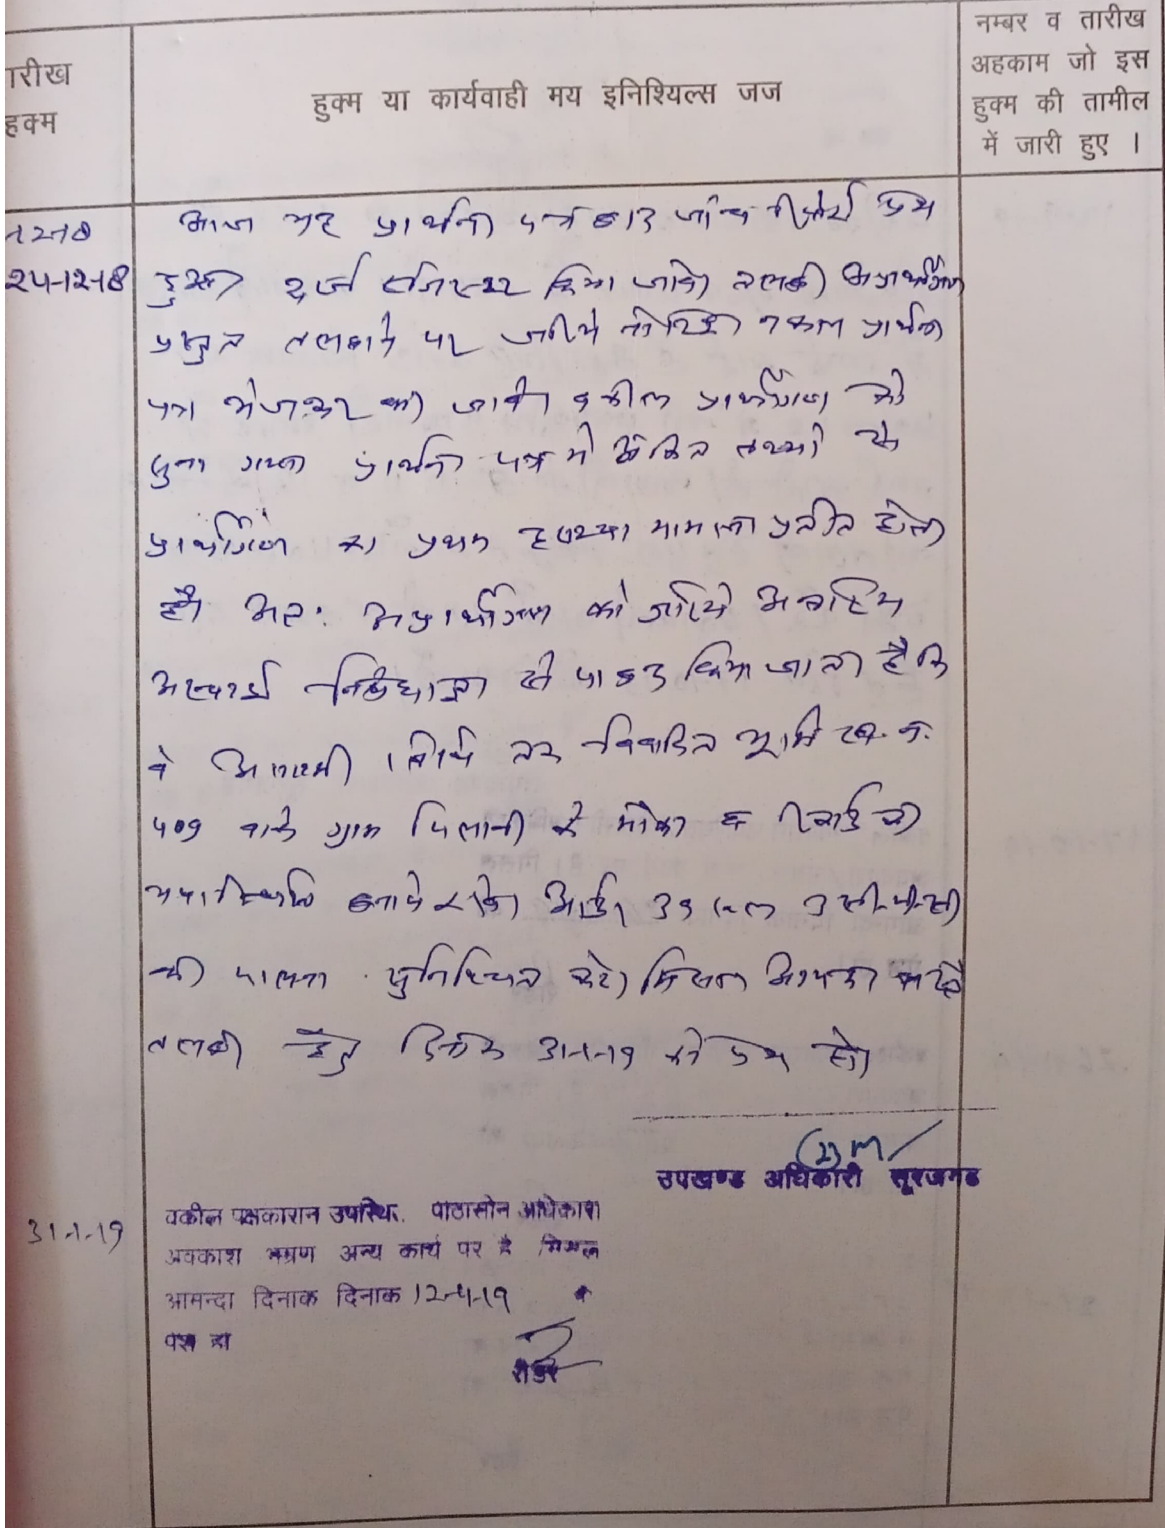 नम्बर व तारीख
अहकाम जो इस
हुक्म की तामील
में जारी हुए ।
ारीख
हुक्म
हुक्म या कार्यवाही मय इनिश्यिल्स जज
24-12-18
आज यह प्रार्थना पत्र बाद जांच रिपोर्ट पेश
हुआ दर्ज रजिस्टर किया जावे तलबी अप्रार्थीगण
प्रस्तुत तलबाने पर जरिये नोटिस नकल प्रार्थना
पत्र भेजकर की जावे वकील प्रार्थीगण को
सुना गया प्रार्थना पत्र में अंकित तथ्यों से
प्रार्थीगण का प्रथम दृष्टया मामला प्रतीत होता
है अतः अप्रार्थीगण को जरिये अन्तरिम
अस्थाई निषेधाज्ञा से पाबंद किया जाता है कि
वे आगामी तक विवादित भूमि ख.न.
409 वाके ग्राम पिलानी के मौका व रिकार्ड की
यथास्थिति बनाये रखे आर्डर 39 रूल 3 सी.पी.सी
की पालना सुनिश्चित करे। मिसल आयन्दा
तलबी हेतु दिनांक 31-1-19 को पेश हो।
उपखण्ड अधिकारी सूरजगढ
31-1-19
वकील पक्षकारान उपस्थित. पीठासीन अधिकारी
अवकाश भ्रमण अन्य कार्य पर है मिसल
आमन्दा दिनाक दिनाक 12-4-19
पेश हो
रीडर